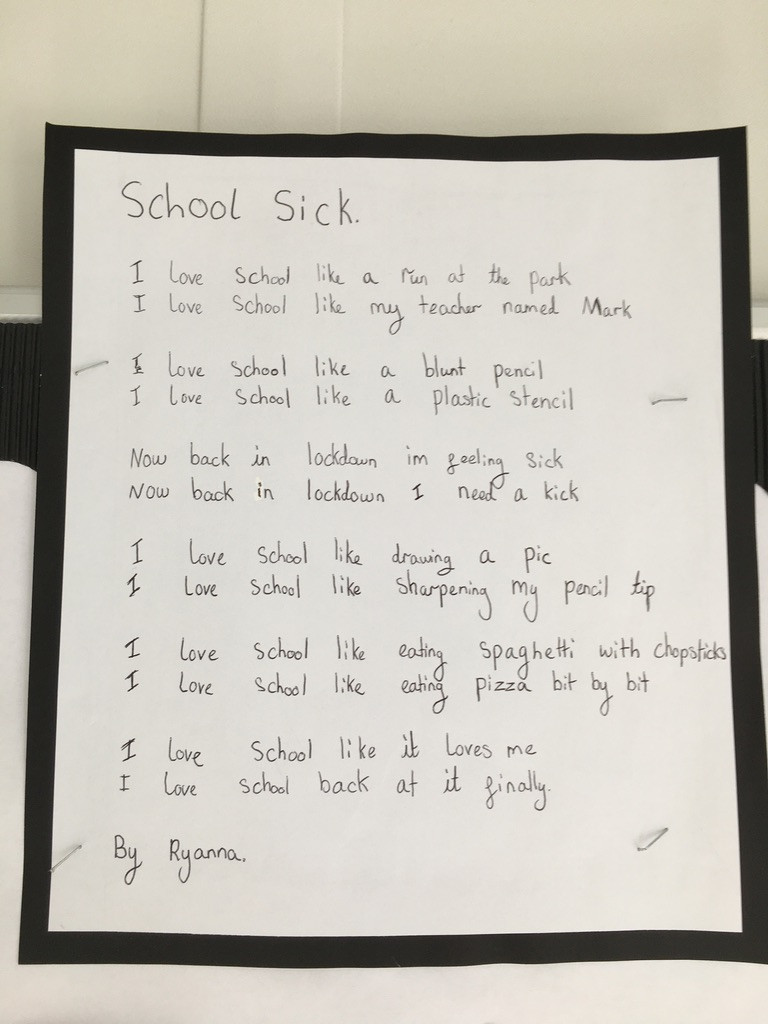 School Sick.
I love school like a run at the park
I love School like my teacher named Mark
I love school like a blunt pencil
I love school like a plastic stencil
Now back in lockdown im feeling sick
Now back in lockdown I need a kick
I love school like drawing a pic
I love school like sharpening my pencil tip
I love school like eating spaghetti with chopsticks
I love school like eating pizza bit by bit
I love school like it loves me
I love school back at it finally.
By Ryanna.